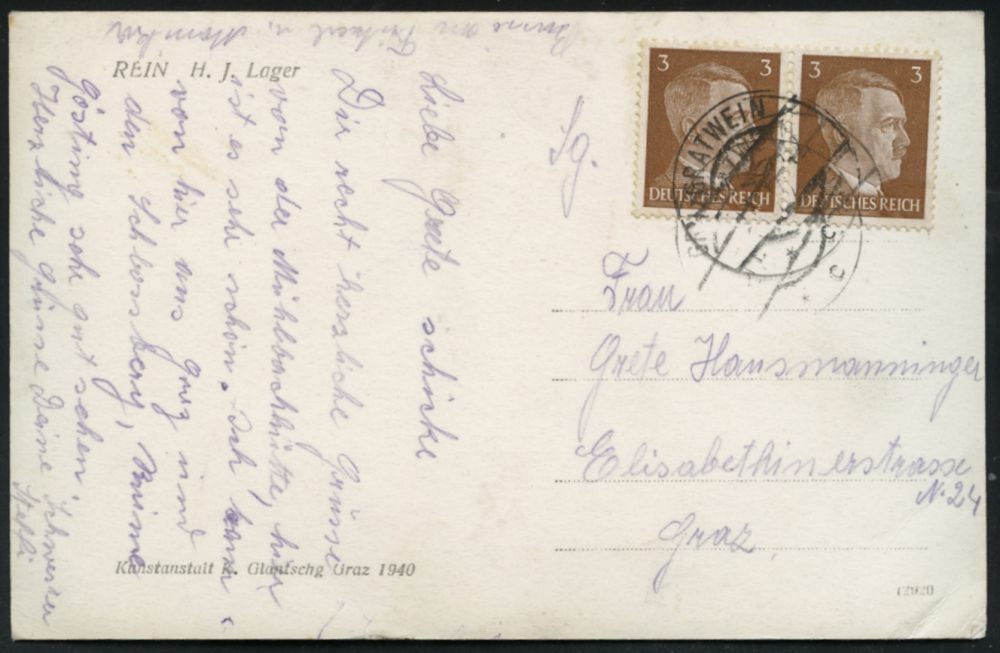 REIN H. J. Lager
Liebe Grete schicke
Dir recht herzliche Grüsse
von der Mühlbachhütte, hier
ist es sehr schön. Ich kann
von hier aus Graz und
den Schlossberg, Ruine
Gösting sehr gut sehen.
Herzliche Grüsse Deine Schwester
Steffi
Sg.
3 3
DEUTSCHES REICH
3 3
DEUTSCHES REICH
GRATWEIN
Frau
Grete Hausmanninger
Elisabethinerstrasse
No. 24
Graz
Kunstanstalt K. Glantschg Graz 1940
12920